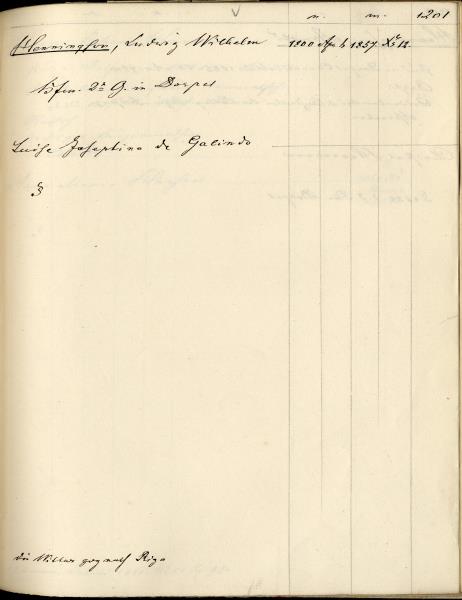 n. m. 1201
Henningson, Ludwig Wilhelm 1800 Apr 6 1857 Xbr 12
Kfm. 2r G. in Dorpat
Luise Josephine de Galindo
§
die Witwe zog nach Riga